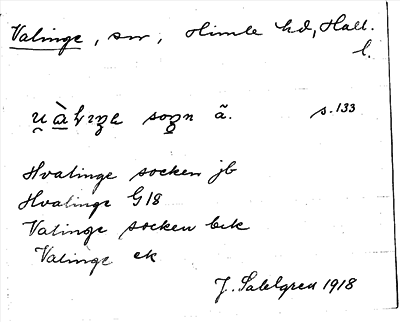 Valinge, sn, Himle hd, Hall.
l.
sokn ã. s. 133
Hvalinge socken jb
Hvalinge G18
Valinge socken bek
Valinge ek
J. Sahlgren 1918